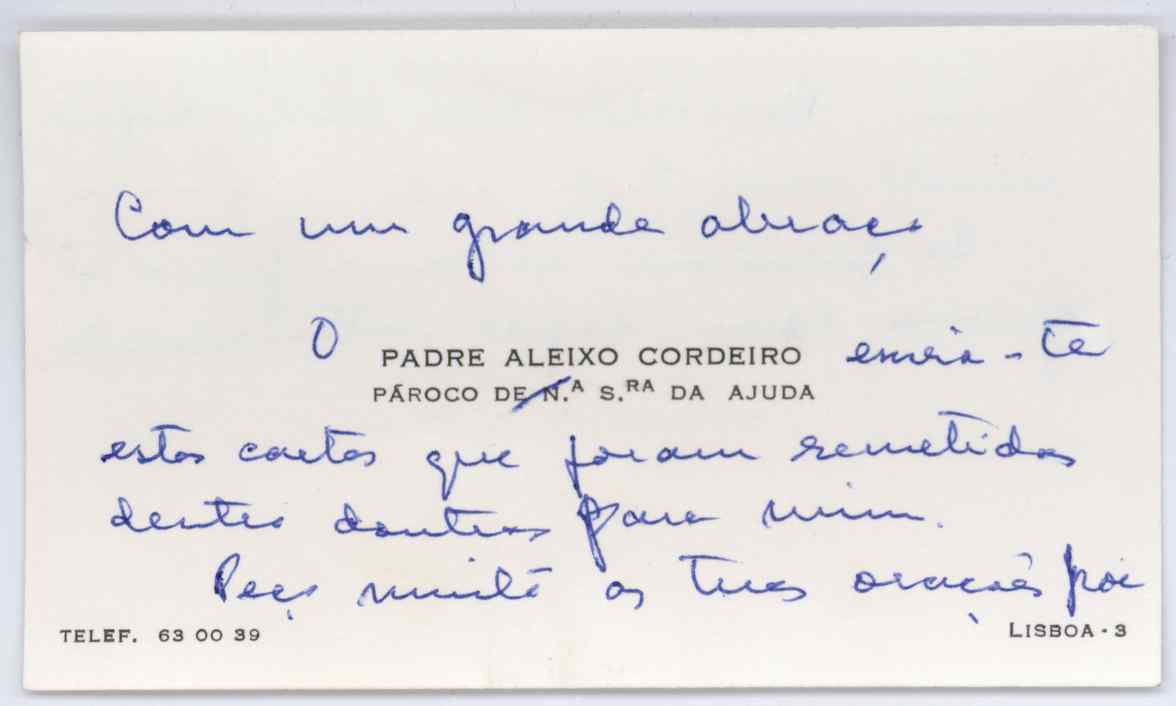 Com um grande abraço
O PADRE ALEIXO CORDEIRO envia-te
PÁROCO DE N.ª S.RA DA AJUDA
estas cartas que foram remetidas
dentro doutras para mim.
Peço muito as tuas orações por
TELEF. 63 00 39 LISBOA - 3